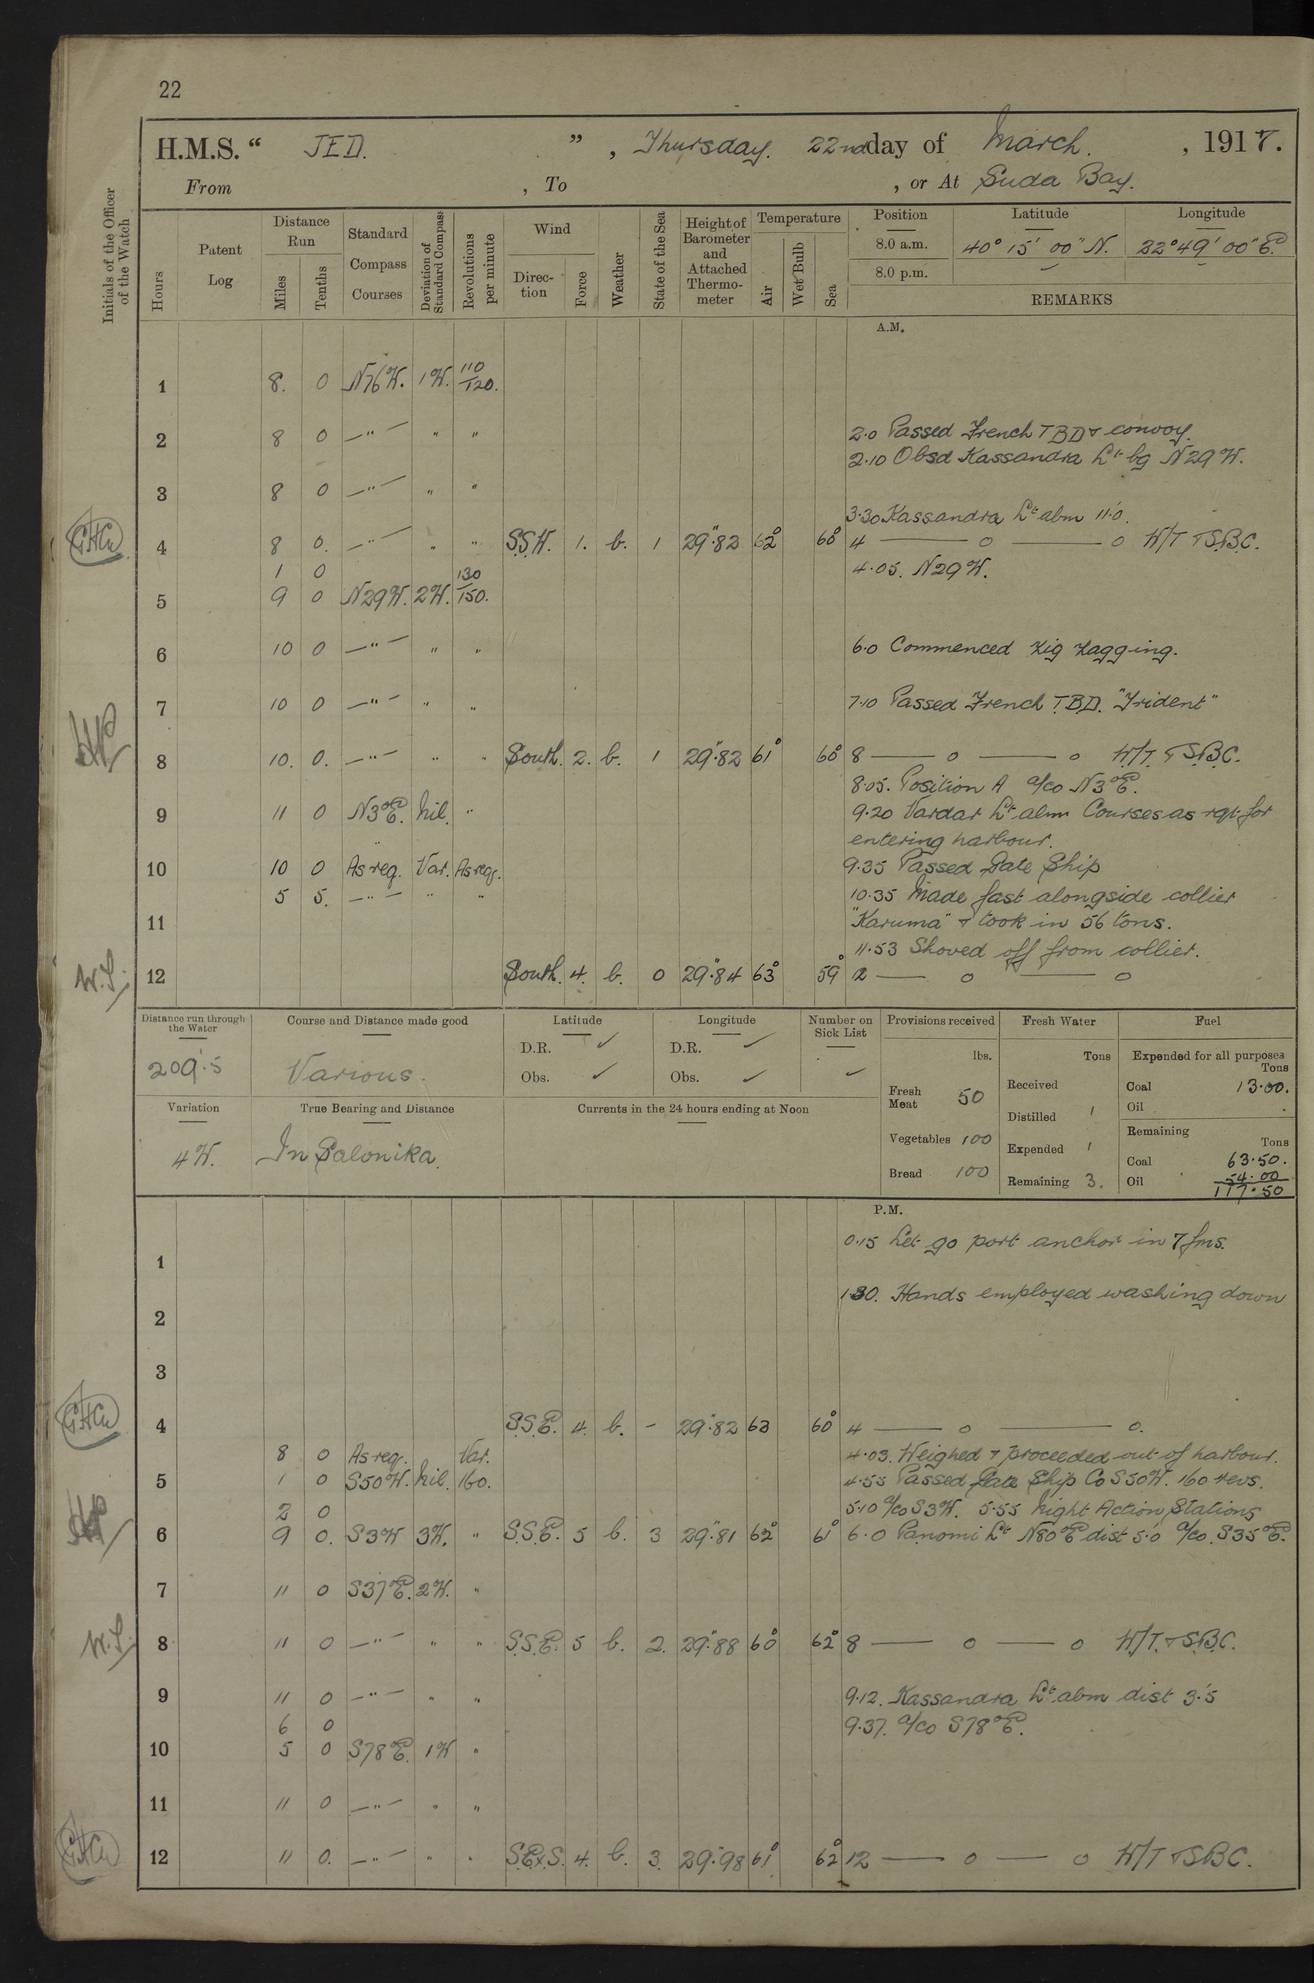 22
H.M.S. “ JED. ” , Thursday. 22nd day of March. , 1917.
From , To , or At Suda Bay.
Initials of the Officer of the Watch
Hours
Patent Log
Distance Run
Miles Tenths
Standard Compass Courses
Deviation of Standard Compass
Revolutions per minute
Wind
Direction Force
Weather
State of the Sea
Height of Barometer and Attached Thermometer
Temperature
Air Wet Bulb Sea
Position Latitude Longitude
8.0 a.m. 40° 15' 00" N. 22° 49' 00" E.
8.0 p.m. – –
REMARKS
A.M.
1 8. 0 N76W. 1W. 110/120.
2 8 0 —"— " " 2.0 Passed French TBD & convoy.
2.10 Obsd Kassandra Lt bg N29W.
3 8 0 —"— " "
3.30 Kassandra Lt abm 11.0.
4 8 0. —"— " " S.S.W. 1. b. 1 29".82 62° 60° 4 — o — o W/T & S.B.C.
1 0 4.05. N29W.
5 9 0 N29W. 2W. 130/150.
6 10 0 —"— " " 6.0 Commenced Zig Zagging.
7 10 0 —"— " " 7.10 Passed French T.B.D. "Trident"
8 10. 0. —"— " " South. 2. b. 1 29".82 61° 60° 8 — o — o W/T. & S.B.C.
8.05. Position A a/co N3°E.
9 11 0 N3°E. Nil. " 9.20 Vardar Lt abm Courses as reqt for
entering harbour.
10 10 0 As req. Var. As req. 9.35 Passed Gate Ship
5 5. —"— " " 10.35 Made fast alongside collier
11 "Karuma" & took in 56 tons.
11.53 Shoved off from collier.
W.S.
12 South. 4. b. 0 29".84 63° 59° 12 — o — o
Distance run through the Water
209'.5
Course and Distance made good
Various.
Latitude
D.R. ✓
Obs. ✓
Longitude
D.R. ✓
Obs. ✓
Number on Sick List
✓
Provisions received
lbs.
Fresh Meat 50
Vegetables 100
Bread 100
Fresh Water
Tons
Received
Distilled 1
Expended 1
Remaining 3.
Fuel
Expended for all purposes
Tons
Coal 13.00.
Oil .
Remaining
Tons
Coal 63.50.
54.00
Oil 117.50
Variation
4W.
True Bearing and Distance
In Salonika.
Currents in the 24 hours ending at Noon
P.M.
0.15 Let go port anchor in 7 fms.
1
1.30. Hands employed washing down
2
3
4 S.S.E. 4. b. - 29".82 63 60° 4 — o — o.
8 0 As req. Var. 4.03. Weighed & proceeded out of harbour.
5 1 0 S50W. Nil. 160. 4.55 Passed Gate Ship Co S50W. 160 revs.
2 0 5.10 a/co S3W. 5.55 Night Action Stations
6 9 0. S3W 3W. " S.S.E. 5 b. 3 29".81 62° 61° 6.0 Panomi Lt N80°E dist 5.0 a/co. S35°E.
7 11 0 S37E. 2W. "
W.S.
8 11 0 —"— " " S.S.E. 5 b. 2. 29".88 60° 62° 8 — o — o W/T. & S.B.C.
9 11 0 —"— " " 9.12. Kassandra Lt. abm dist 3'.5
6 0 9.37. a/co S78°E.
10 5 0 S78E. 1W "
11 11 0 —"— " "
12 11 0. —"— " " S.E.xS. 4. b. 3. 29".98 61° 62° 12 — o — o W/T & S.B.C.